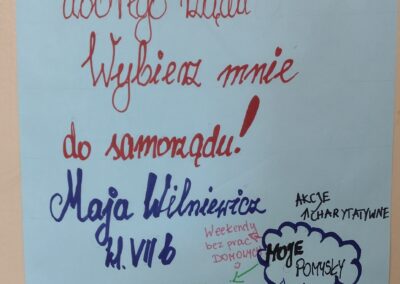 dobrego rządu
Wybierz mnie
do samorządu!
Maja Wilniewicz
kl. VII b
AKCJE
CHARYTATYWNE
Weekendy
bez prac
DOMOWYCH
MOJE
POMYSŁY